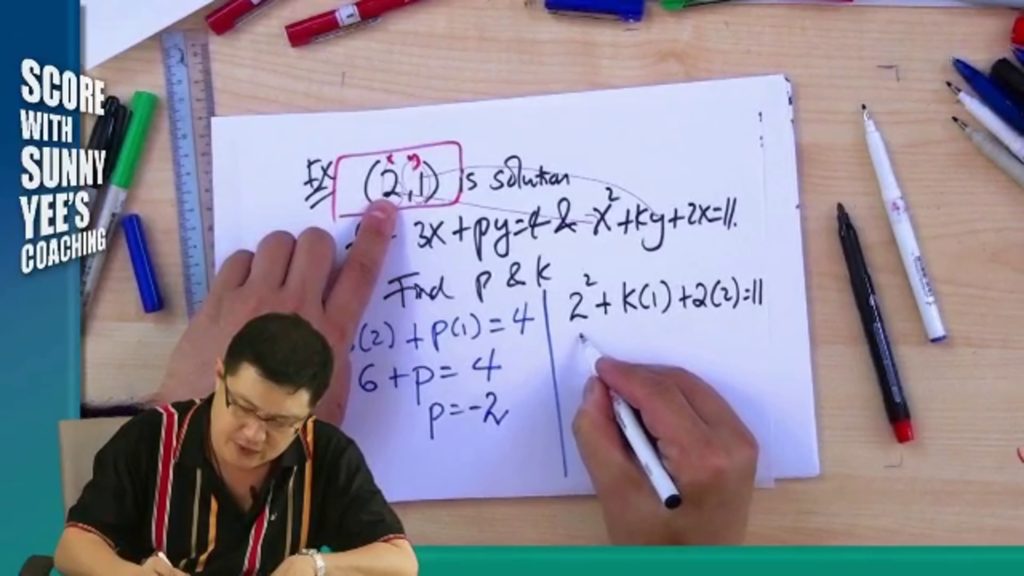 SCORE
WITH
SUNNY
YEE'S
COACHING
Ex (2,1) is solution
x y
3x+py=4 & x²+ky+2x=11.
Find p & k
(2)+p(1)=4
6+p=4
p=-2
2²+k(1)+2(2)=11